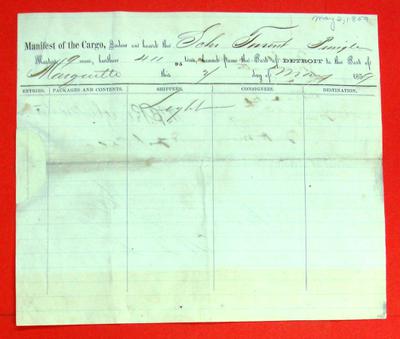 may 2, 1859
Manifest of the Cargo, Laden on board the Schr
Master, 9 men, burthen 411 95 tons, bound from the Port of DETROIT to the Port of
Marquette this 2 day of May 1859
ENTRIES. PACKAGES AND CONTENTS. SHIPPERS. CONSIGNEES. DESTINATION.
Light